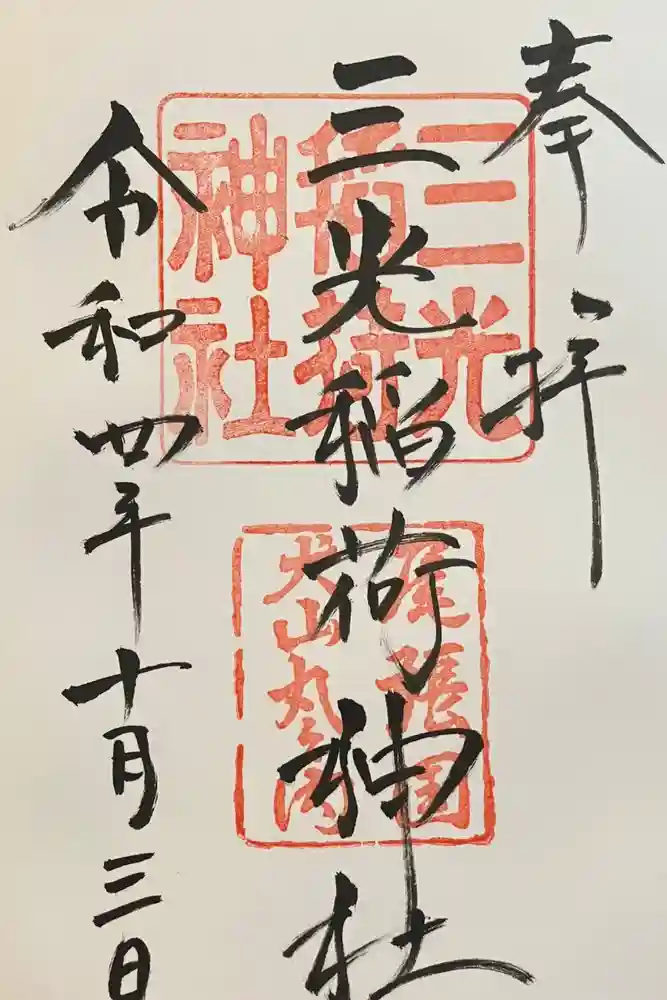 奉拝
三光稲荷神社
令和四年十月三日
三光
稲荷
神社
尾張国
犬山丸之内